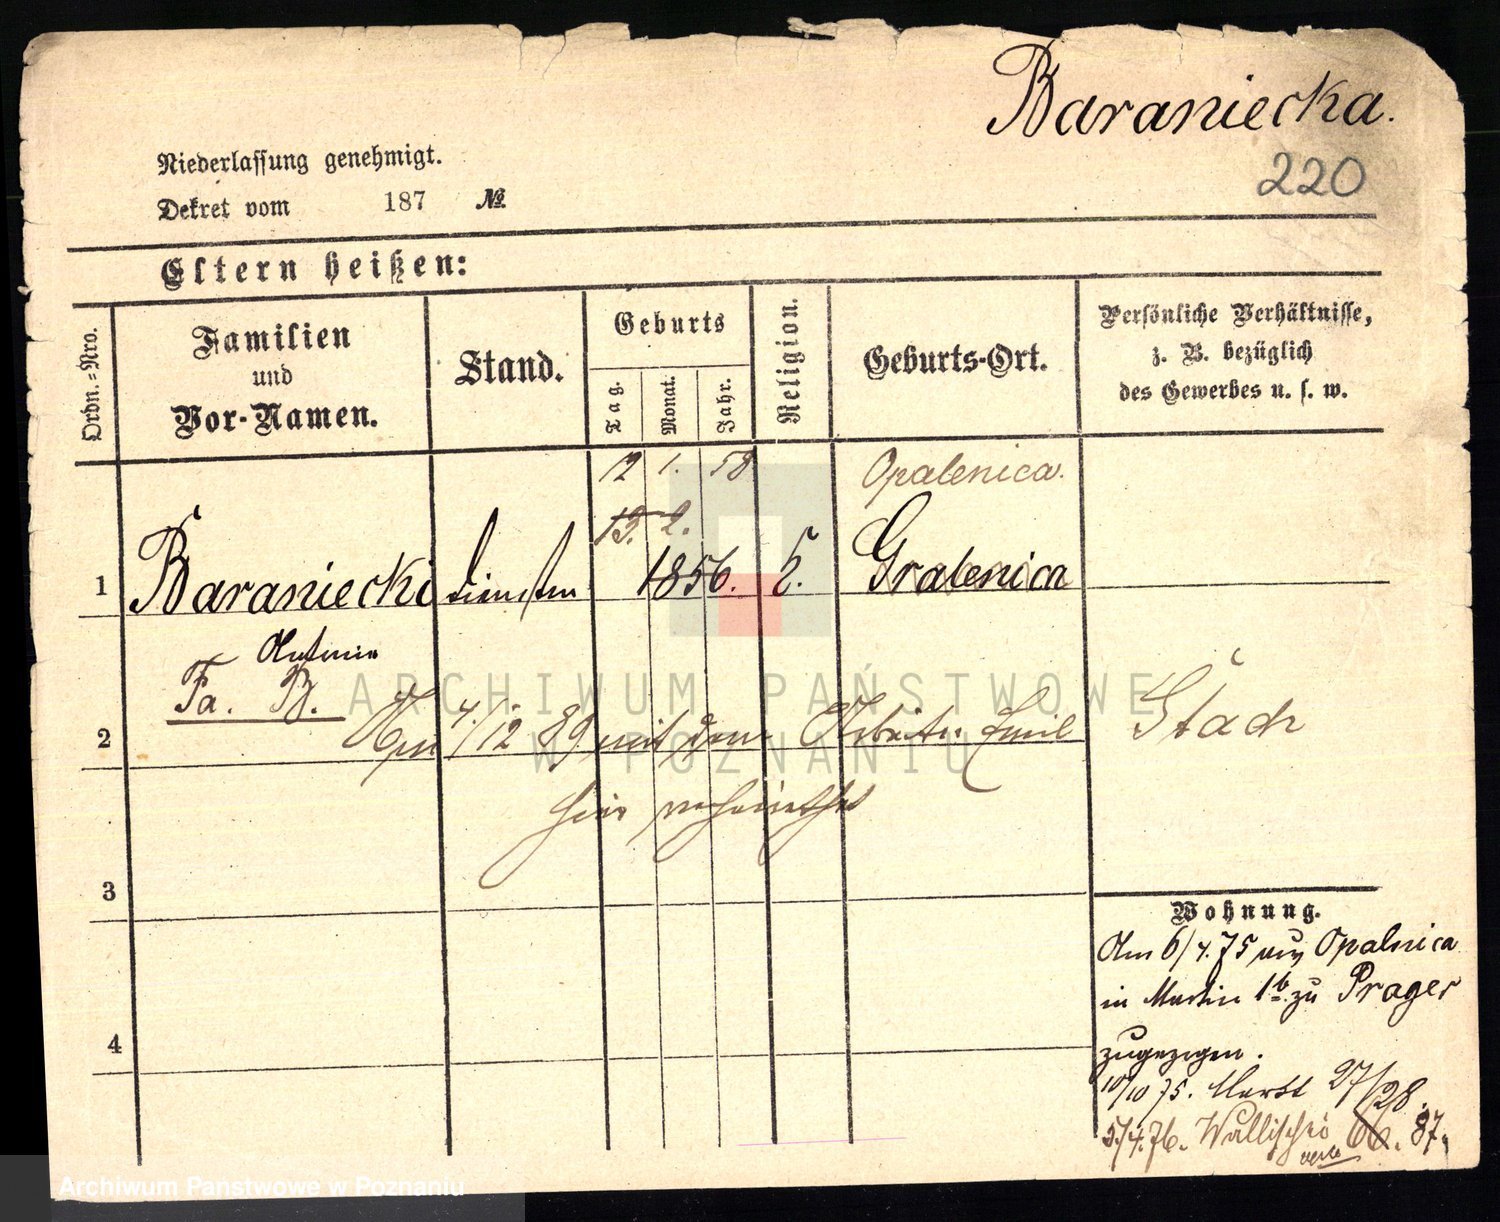 Baraniecka.
220
Niederlassung genehmigt.
Dekret vom 187 №
Eltern heißen:
Ordn.-Nro.
Familien
und
Vor-Namen.
Stand.
Geburts
Tag.
Monat.
Jahr.
Religion.
Geburts-Ort.
Persönliche Verhältnisse,
z. B. bezüglich
des Gewerbes u. s. w.
12 1. 58 Opalenica.
13. 2.
1 Baraniecki 1856. Gralenica
Antonie
Fa. B.
2 4/12 89 mit dem Arbeiter Emil Stach
hier verheirathet
3
4
Wohnung.
Am 6/4.75 aus Opalnica
in Martin 1b. zu Prager
zugezogen.
10/10 75. Markt 27/28.
5/4.76. Wallischei 66. 87.
ARCHIWUM PAŃSTWOWE
W POZNANIU
Archiwum Państwowe w Poznaniu